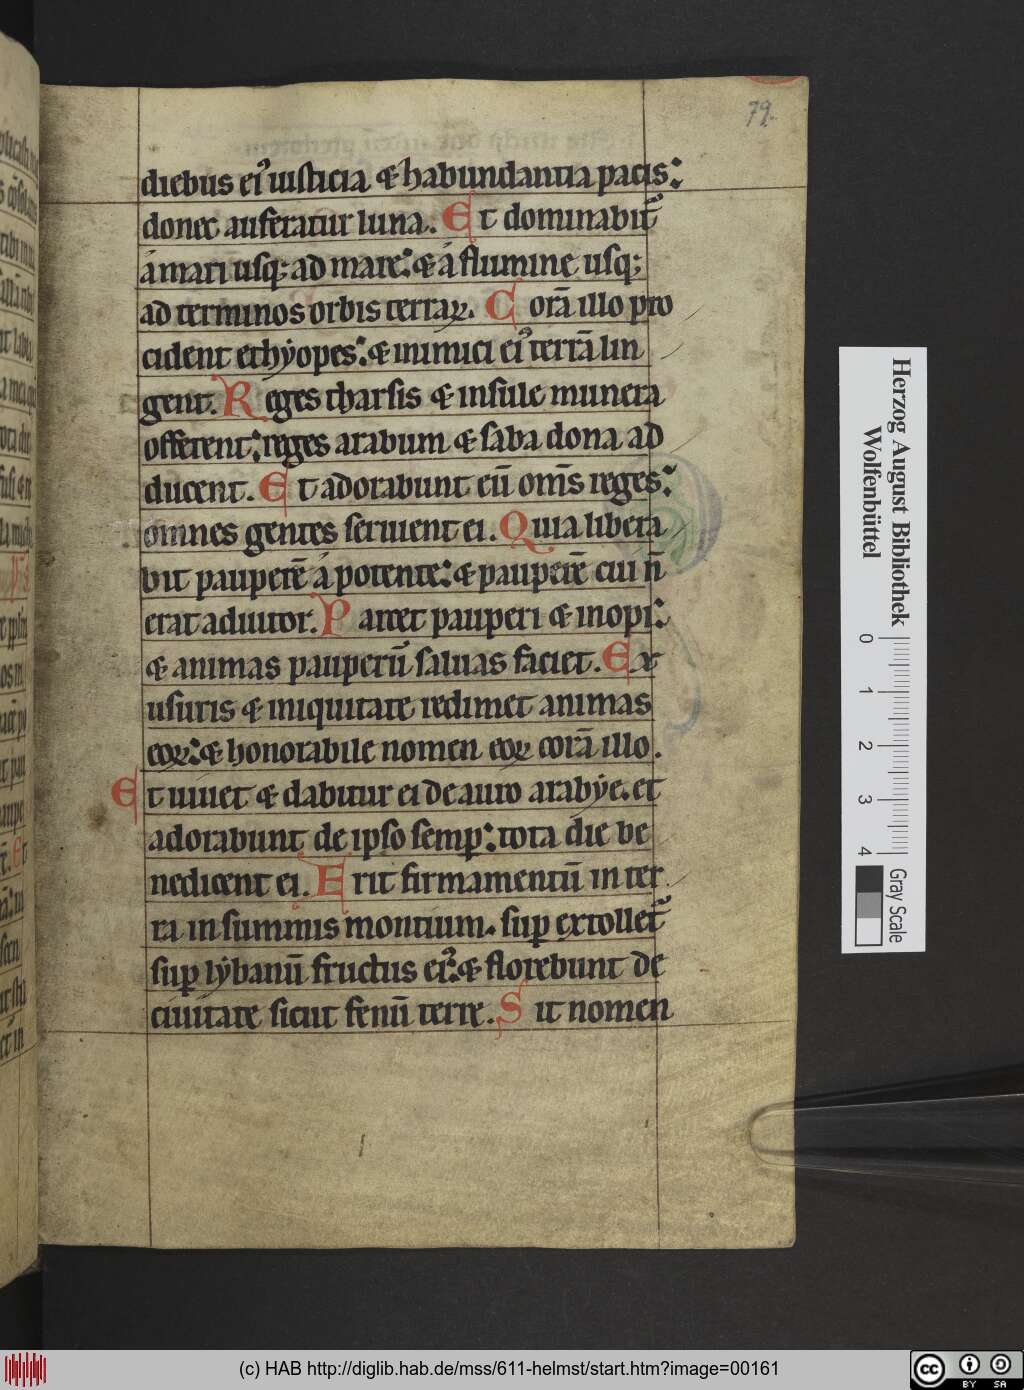 79.
diebus ei⁹ iusticia & habundantia pacis:
donec auferatur luna. Et dominabit᷑
a mari usq; ad mare: & a flumine usq;
ad terminos orbis terraꝝ. Corā illo pro
cident ethyopes: & inimici ei⁹ terrā lin
gent. Reges tharsis & insule munera
offerent: reges arabum & saba dona ad
ducent. Et adorabunt eū om̄s reges:
omnes gentes seruient ei. Quia libera
bit pauperē a potente: & pauperē cui n̄
erat adiutor. Parcet pauperi & inopi:
& animas pauperū saluas faciet. Ex
usuris & iniquitate redimet animas
eoꝝ: & honorabile nomen eoꝝ corā illo.
Et uiuet & dabitur ei de auro arabye. et
adorabunt de ipso semp: tota die be
nedicent ei. Erit firmamentū in ter
ra in summis montium. sup extollet᷑
sup lybanū fructus ei⁹: & florebunt de
ciuitate sicut fenū terre. Sit nomen
Herzog August Bibliothek
Wolfenbüttel
0 1 2 3 4
Gray Scale
(c) HAB http://diglib.hab.de/mss/611-helmst/start.htm?image=00161
cc BY SA